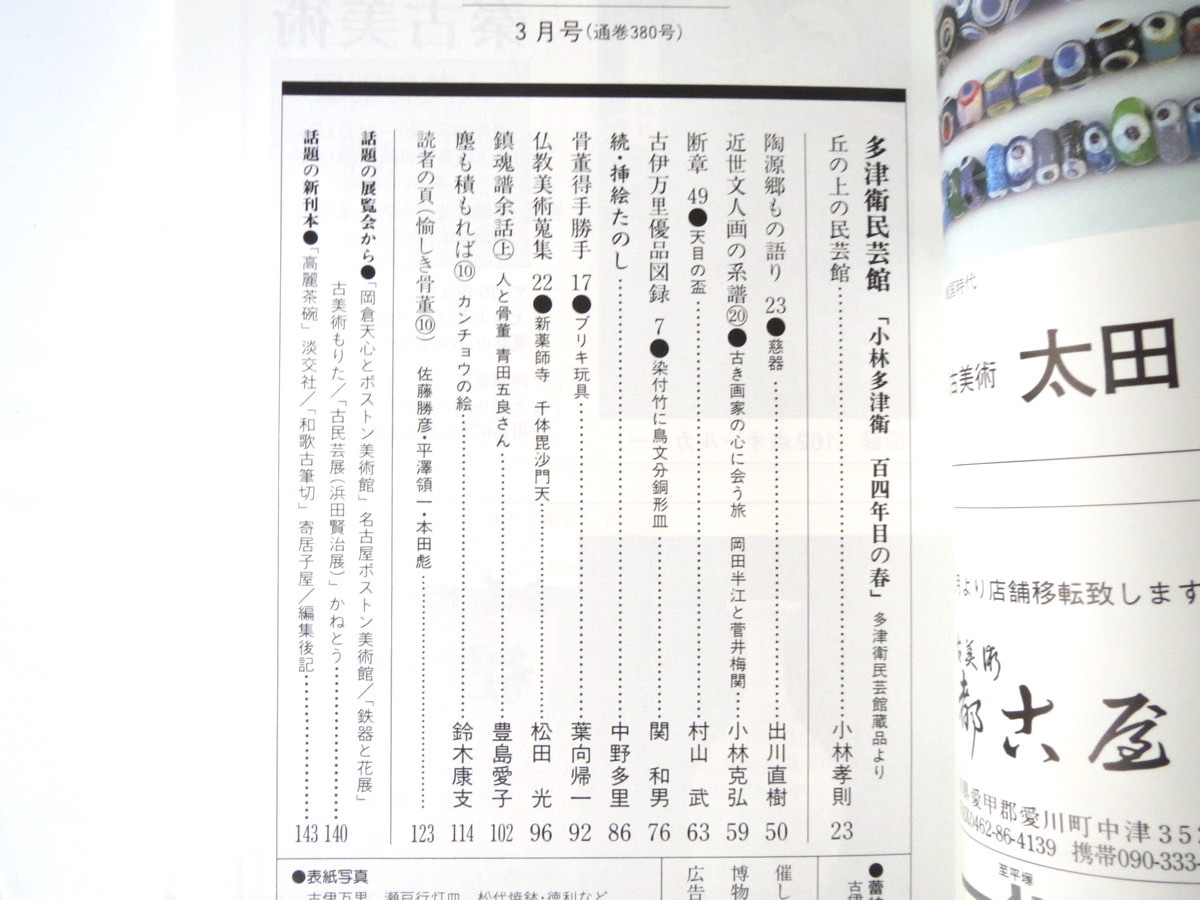 3月号(通巻380号)
多津衛民芸館 「小林多津衛 百四年目の春」 多津衛民芸館蔵品より
丘の上の民芸館……小林孝則 23
陶源郷もの語り 23●慈器……出川直樹 50
近世文人画の系譜⑳●古き画家の心に会う旅 岡田半江と菅井梅関……小林克弘 59
断章 49●天目の盃……村山 武 63
古伊万里優品図録 7●染付竹に鳥文分銅形皿……関 和男 76
続・挿絵たのし……中野多里 86
骨董得手勝手 17●ブリキ玩具……葉向帰一 92
仏教美術蒐集 22●新薬師寺 千体毘沙門天……松田 光 96
鎮魂譜余話㊤ 人と骨董 青田五良さん……豊島愛子 102
塵も積もれば⑩ カンチョウの絵……鈴木康支 114
読者の頁(愉しき骨董⑩) 佐藤勝彦・平澤領一・本田彪……123
話題の展覧会から●「岡倉天心とボストン美術館」名古屋ボストン美術館/「鉄器と花展」
古美術もりた/「古民芸展(浜田賢治展)」かねとう……140
話題の新刊本●「高麗茶碗」淡交社/「和歌古筆切」寄居子屋/編集後記……143
●表紙写真
古伊万里、瀬戸行灯皿、松代焼鉢・徳利など
催し
博物
広告
時代
古美術 太田
より店舗移転致します
古美術
都古屋
県愛甲郡愛川町中津35
0462-86-4139 携帯090-333-
至平塚